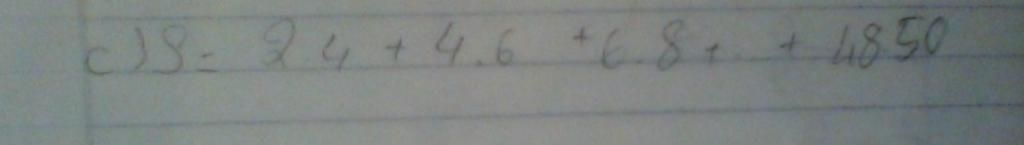 c) S = 2.4 + 4.6 + 6.8 + .. + 4850